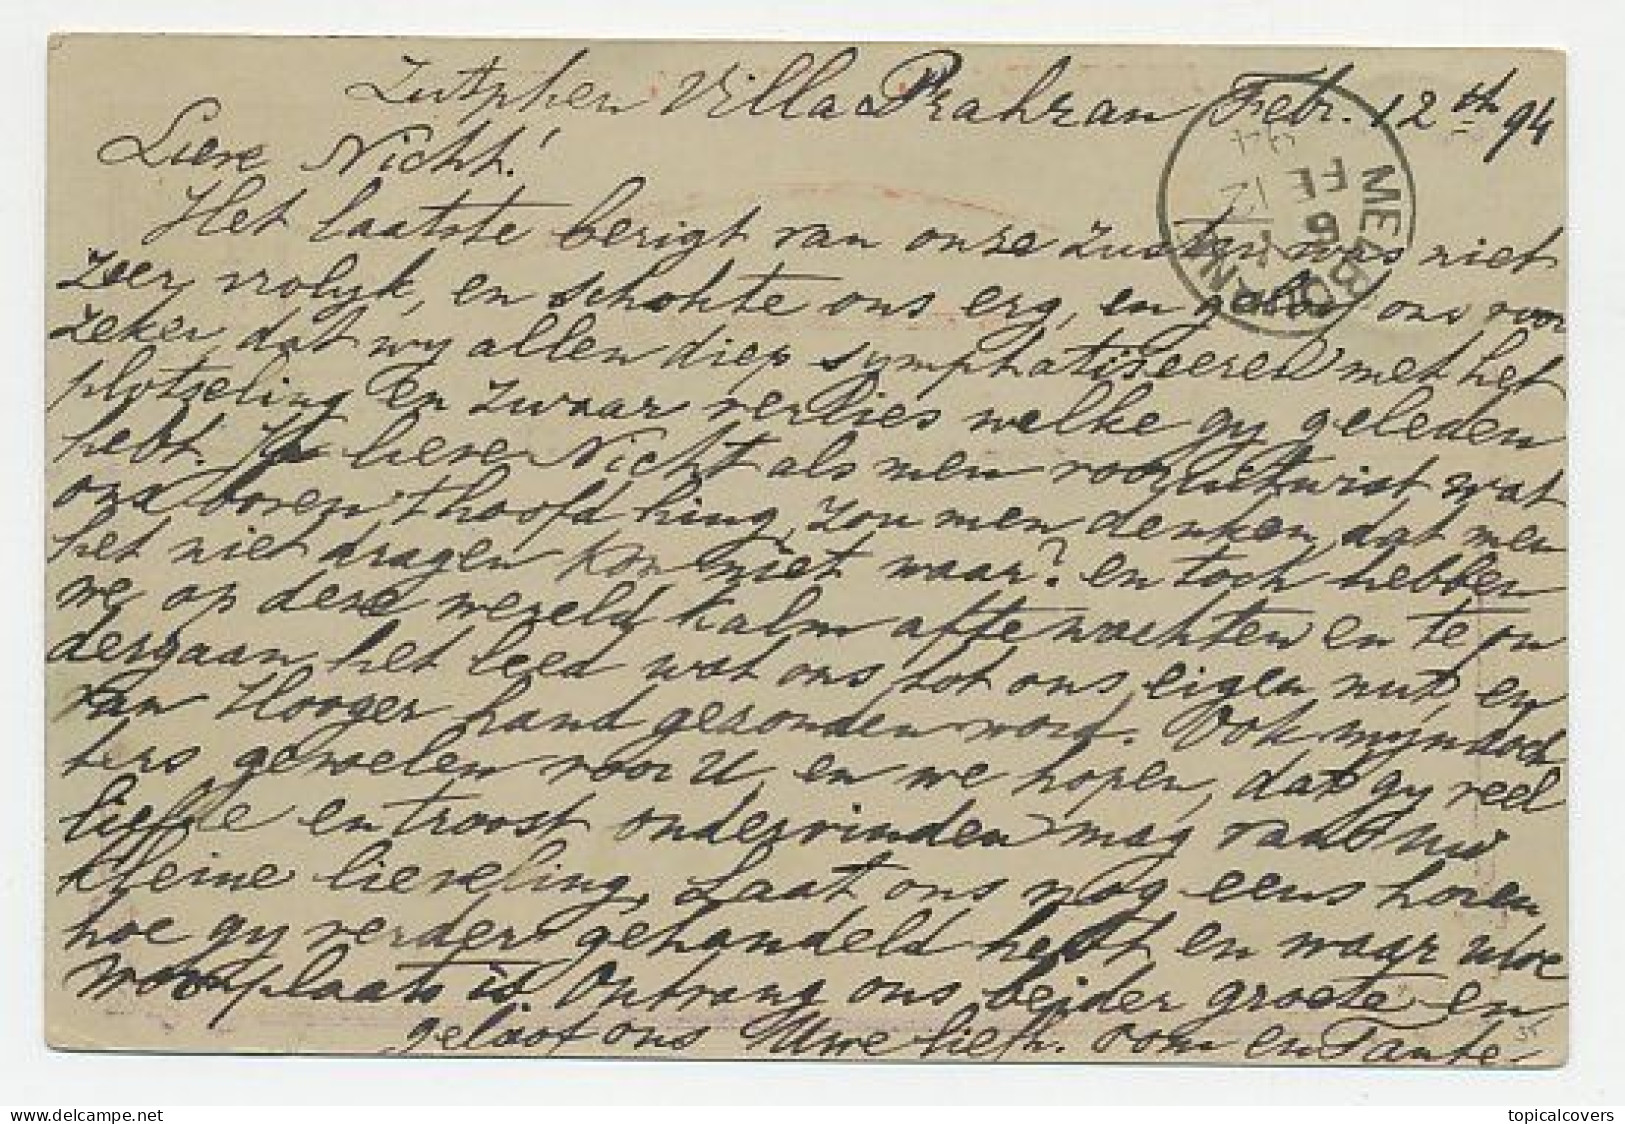 Zutphen Villa Prahran Febr. 12th 94
Lieve Nicht!
Het laatste berigt van onze zuster was niet
zeer vrolyk, en schokte ons erg, en geloof ons voor
zeker, dat wy allen diep symphatiseeren met het
plotseling en zwaar verlies welke gy geleden
hebt. Ja lieve Nicht als men vooruit wist wat
ons boven 't hoofd hing, zou men denken, dat men
het niet dragen kon niet waar? en toch hebben
we op deze wereld kalm afte wachten en te on
dergaan het leed wat ons tot ons eigen nut, en
van Hooger hand gezonden word. Ook myn doch
ters gevoelen voor U, en we hopen, dat gy veel
liefde en troost ondervinden mag van Uw
kleine lieveling, Laat ons nog eens horen
hoe gy verder gehandeld hebt en waar uwe
woonplaats is. Ontvang ons beider groete en
geloof ons Uwe liefh. Oom en Tante
MELBOURNE
FE
12
94
topicalcovers